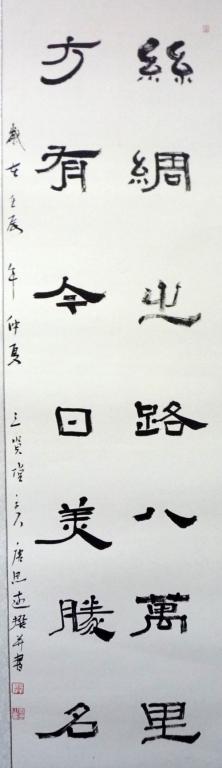 絲綢之路八萬里
方有今日美勝名
歲在壬辰年仲夏 三賢堂 撰并書